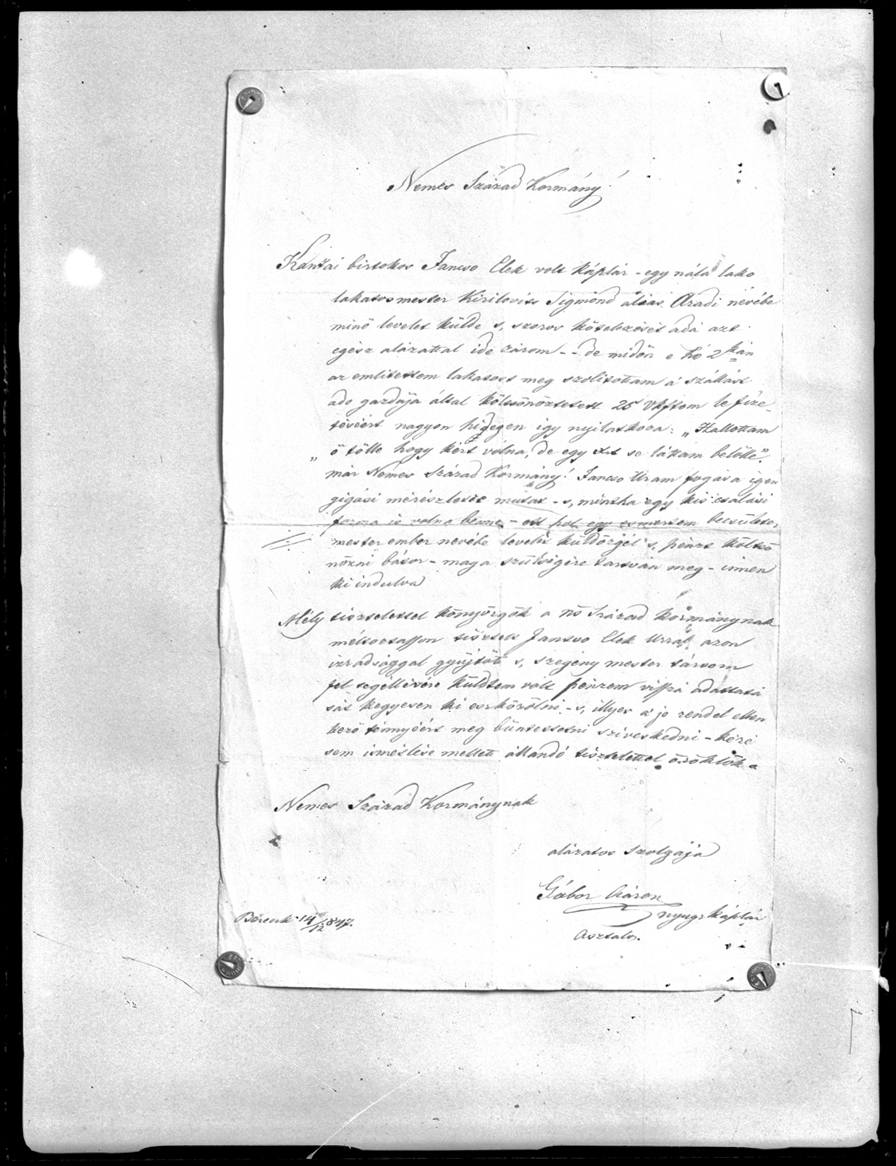 Nemes Század Kormány!
Kantai birtokos Jancso Elek volt káplár - egy nála lako
lakatosmester Kirilovits Sigmond aliás Aradi nevébe
minő levelet külde s, szoros kötelezését adá azt
egész alázattal ide zárom - - de midőn e hó 2kán
az emlitettem lakatost meg szolitotam á szállást
ado gazdája által költsönöztetett 25 Vftom le fize-
téséért nagyon hidegen igy nyilatkoza: „Hallottam
„ ő tölle hogy kért volna, de egy xt se láttam belölle"
már Nemes Század Kormány! Jancso Uram fogása igen
gigási mérészletet mutat - s, mintha egy kis csalási
forma is volna benne - ott hol egy esmertem becsületes
mester ember nevébe levelet küldözget s, pénzt költsö
nözni bátor - maga szükségire tartván meg - innen
ki indulva
Mély tisztelettel könyörgök a Ns Század kormánynak
méltoztasson tisztelt Jancso Elek Urrál azon
izzadsággal gyüjtött s, szegény mester társom
fel segéllésére küldtem vólt pénzem viszsza adattatá
sát kegyesen ki eszközölni - s, illyes a jo rendel ellen
kező ténnyéért meg büntettetni sziveskedni - kéré
sem ismétlése mellett állandó tisztelettel öröklök a
Nemes Század Kormánynak
alázatos szolgája
Gábor Áron
nyug: káplár
Asztalos.
Bereck 14/12 847.